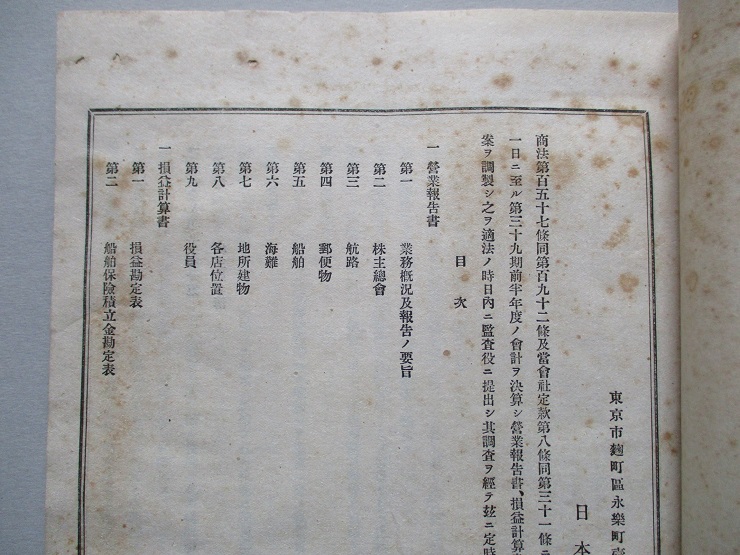 東京市麴町區永樂町
日本
商法第百五十七條同第百九十二條及當會社定款第八條同第三十一條ニ
一日ニ至ル第三十九期前半年度ノ會計ヲ決算シ營業報告書、損益計算
案ヲ調製シ之ヲ適法ノ時日內ニ監査役ニ提出シ其調査ヲ經テ玆ニ定時
目次
一 營業報告書
第一 業務槪況及報告ノ要旨
第二 株主總會
第三 航路
第四 郵便物
第五 船舶
第六 海難
第七 地所建物
第八 各店位置
第九 役員
一 損益計算書
第一 損益勘定表
第二 船舶保險積立金勘定表